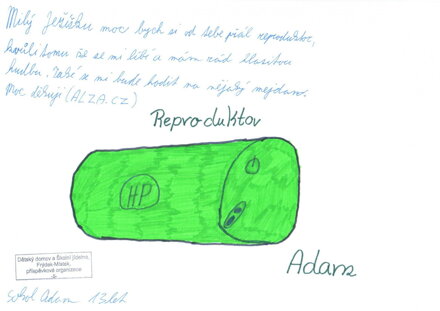 Milý Ježíšku moc bych si od tebe přál reproduktor,
kvůli tomu že se mi líbí a mám rád hlasitou
hudbu. Také se mi bude hodit na nějaký mejdan.
Moc děkuji (ALZA.CZ)
Reproduktor
HP
Dětský domov a Školní jídelna,
Frýdek-Místek,
příspěvková organizace
Adam
Sokol Adam 13 let